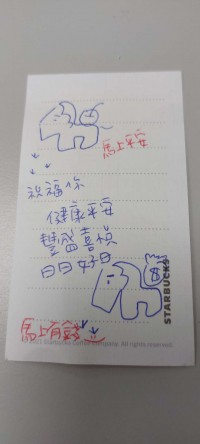 馬上平安
祝福你
健康平安
豐盛喜悅
日日好日
STARBUCKS
馬上有錢
All rights reserved.